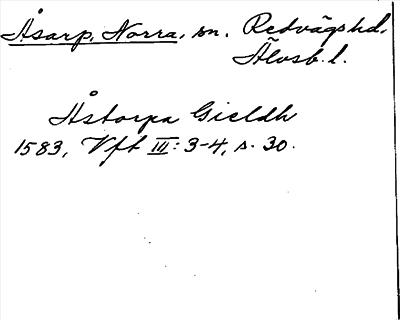 Åsarp, Norra, sn. Redvägs hd,
Älvsb. l.
Åstorpa Gieldh
1583, Vft III: 3-4, s. 30.